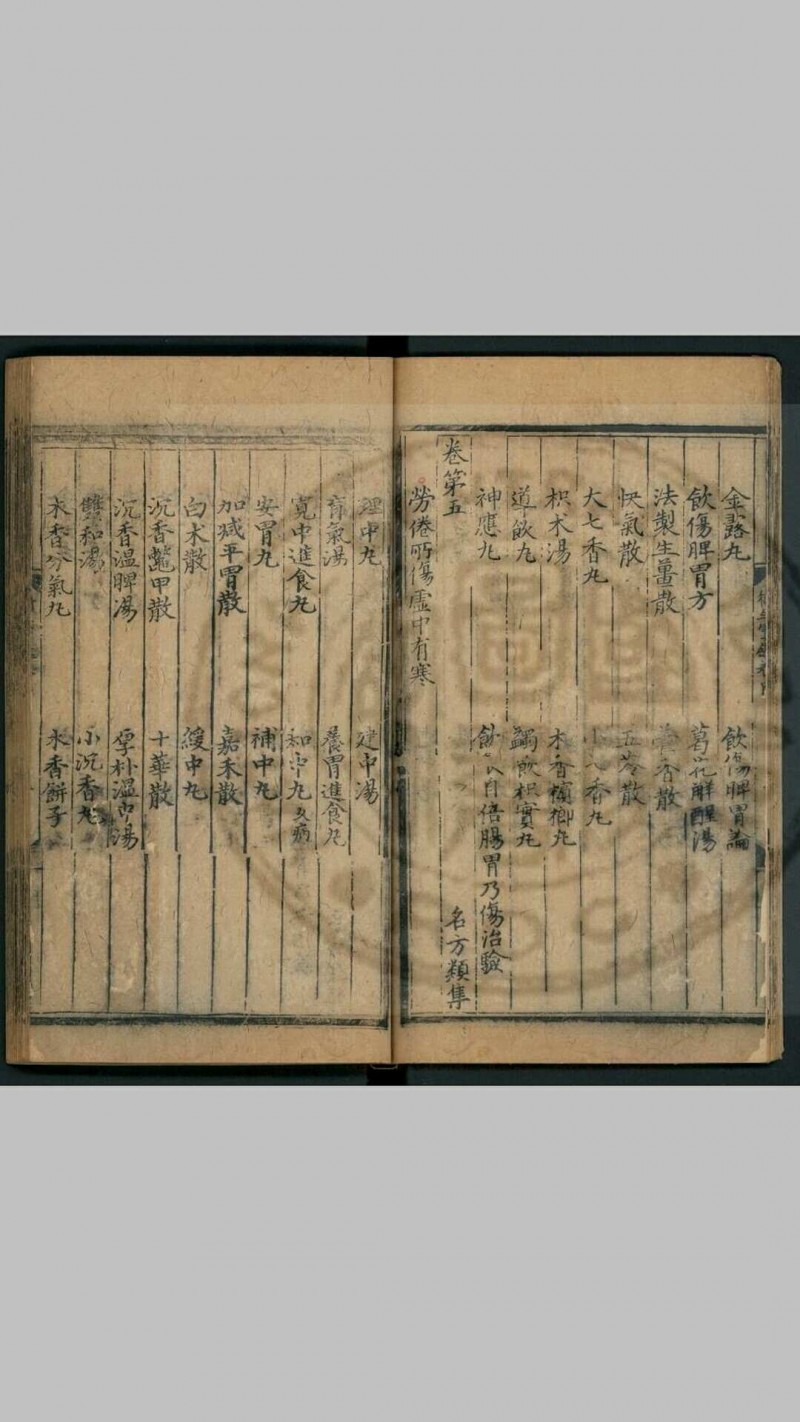 金露丸　飲傷脾胃論
飲傷脾胃方　葛花解酲湯
法製生薑散　香散
快氣散　五苓散
大七香丸　小七香丸
枳术湯　木香檳榔丸
導飲丸　觴飲枳實丸
神應丸　飲食自倍腸胃乃傷治驗
卷第五　名方類集
勞倦所傷虛中有寒
理中丸　建中湯
育氣湯　養胃進食丸
寬中進食丸　和中丸久病
安胃丸　補中丸
加减平胃散　嘉禾散
白术散　緩中丸
沉香鱉甲散　十華散
沉香溫脾湯　厚朴溫中湯
雙和湯　小沉香丸
木香分氣丸　木香餅子